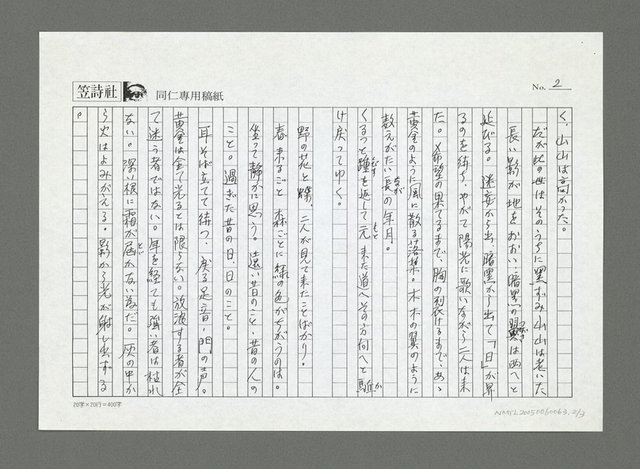 笠詩社 同仁専用稿紙
No. 2
く、山山は高かった。
だが此の世はそのうちに黒ずみ山山は老いた
長い影が地をおおい、暗黒の翼は西へと
延びる。迷妄から出、暗黒から出て「日」が昇
るのを待ち、やがて陽光に歌いながら二人は来
た。希望の果てるまで、胸の裂けるまで、あゝ
黄金のように風に散る落葉。木木の翼のように
数えがたい長の年月。
くるっと踵を返して元来た道へその方向へと駈
け戻ってゆく。
野の花と蝶、二人が見て来たことばかり。
春来るごと森ごとに緑の色がちがうのは。
坐って静かに思う。遠い昔のこと、昔の人の
こと。過ぎた昔の日、日のこと。
耳そば立てて待つ、戻る足音・門の声。
黄金は全て光るとは限らない。放浪する者が全
て迷う者ではない。年を経ても強者は枯れ
ない。深い根に霜が届かない為だ。灰の中か
ら火はよみがえる。影から光が射し出する
。
20字×20行＝400字
NMTL20050060063. 2/3